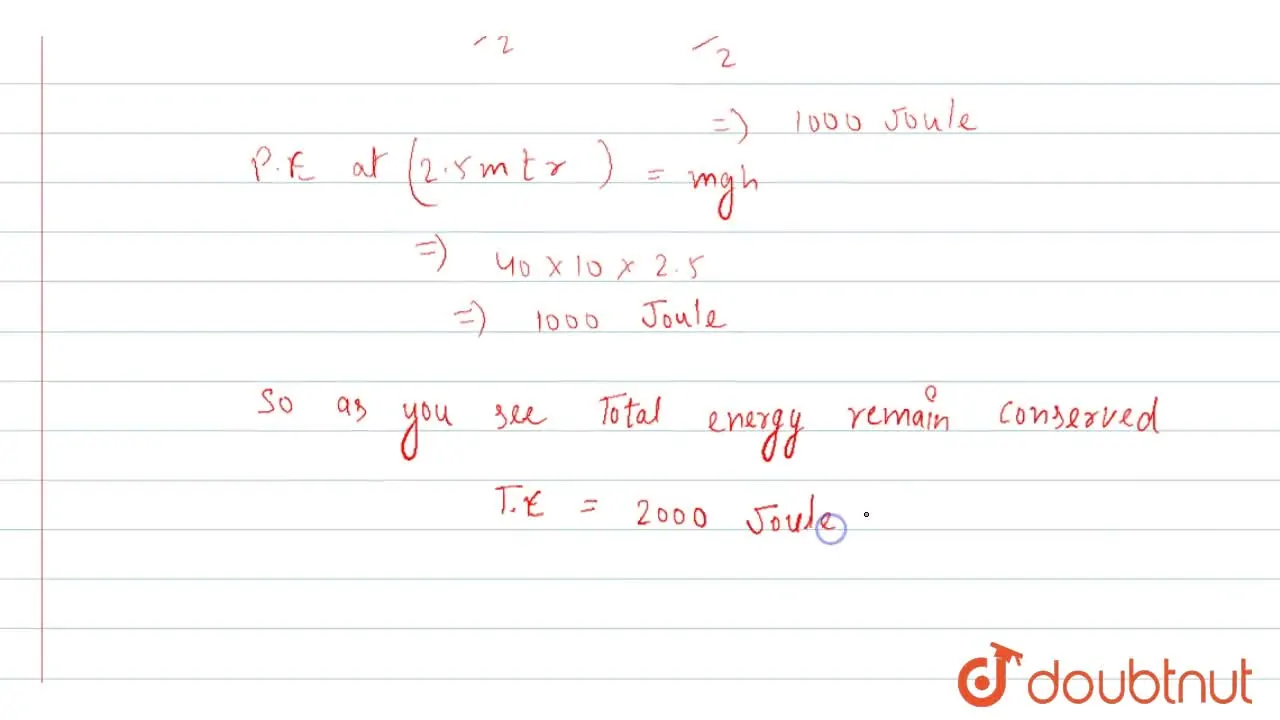 2 2
=) 1000 Joule
P.E at (2.5 mtr) = mgh
=) 40 x 10 x 2.5
=) 1000 Joule
So as you see Total energy remain conserved
T.E = 2000 Joule
doubtnut